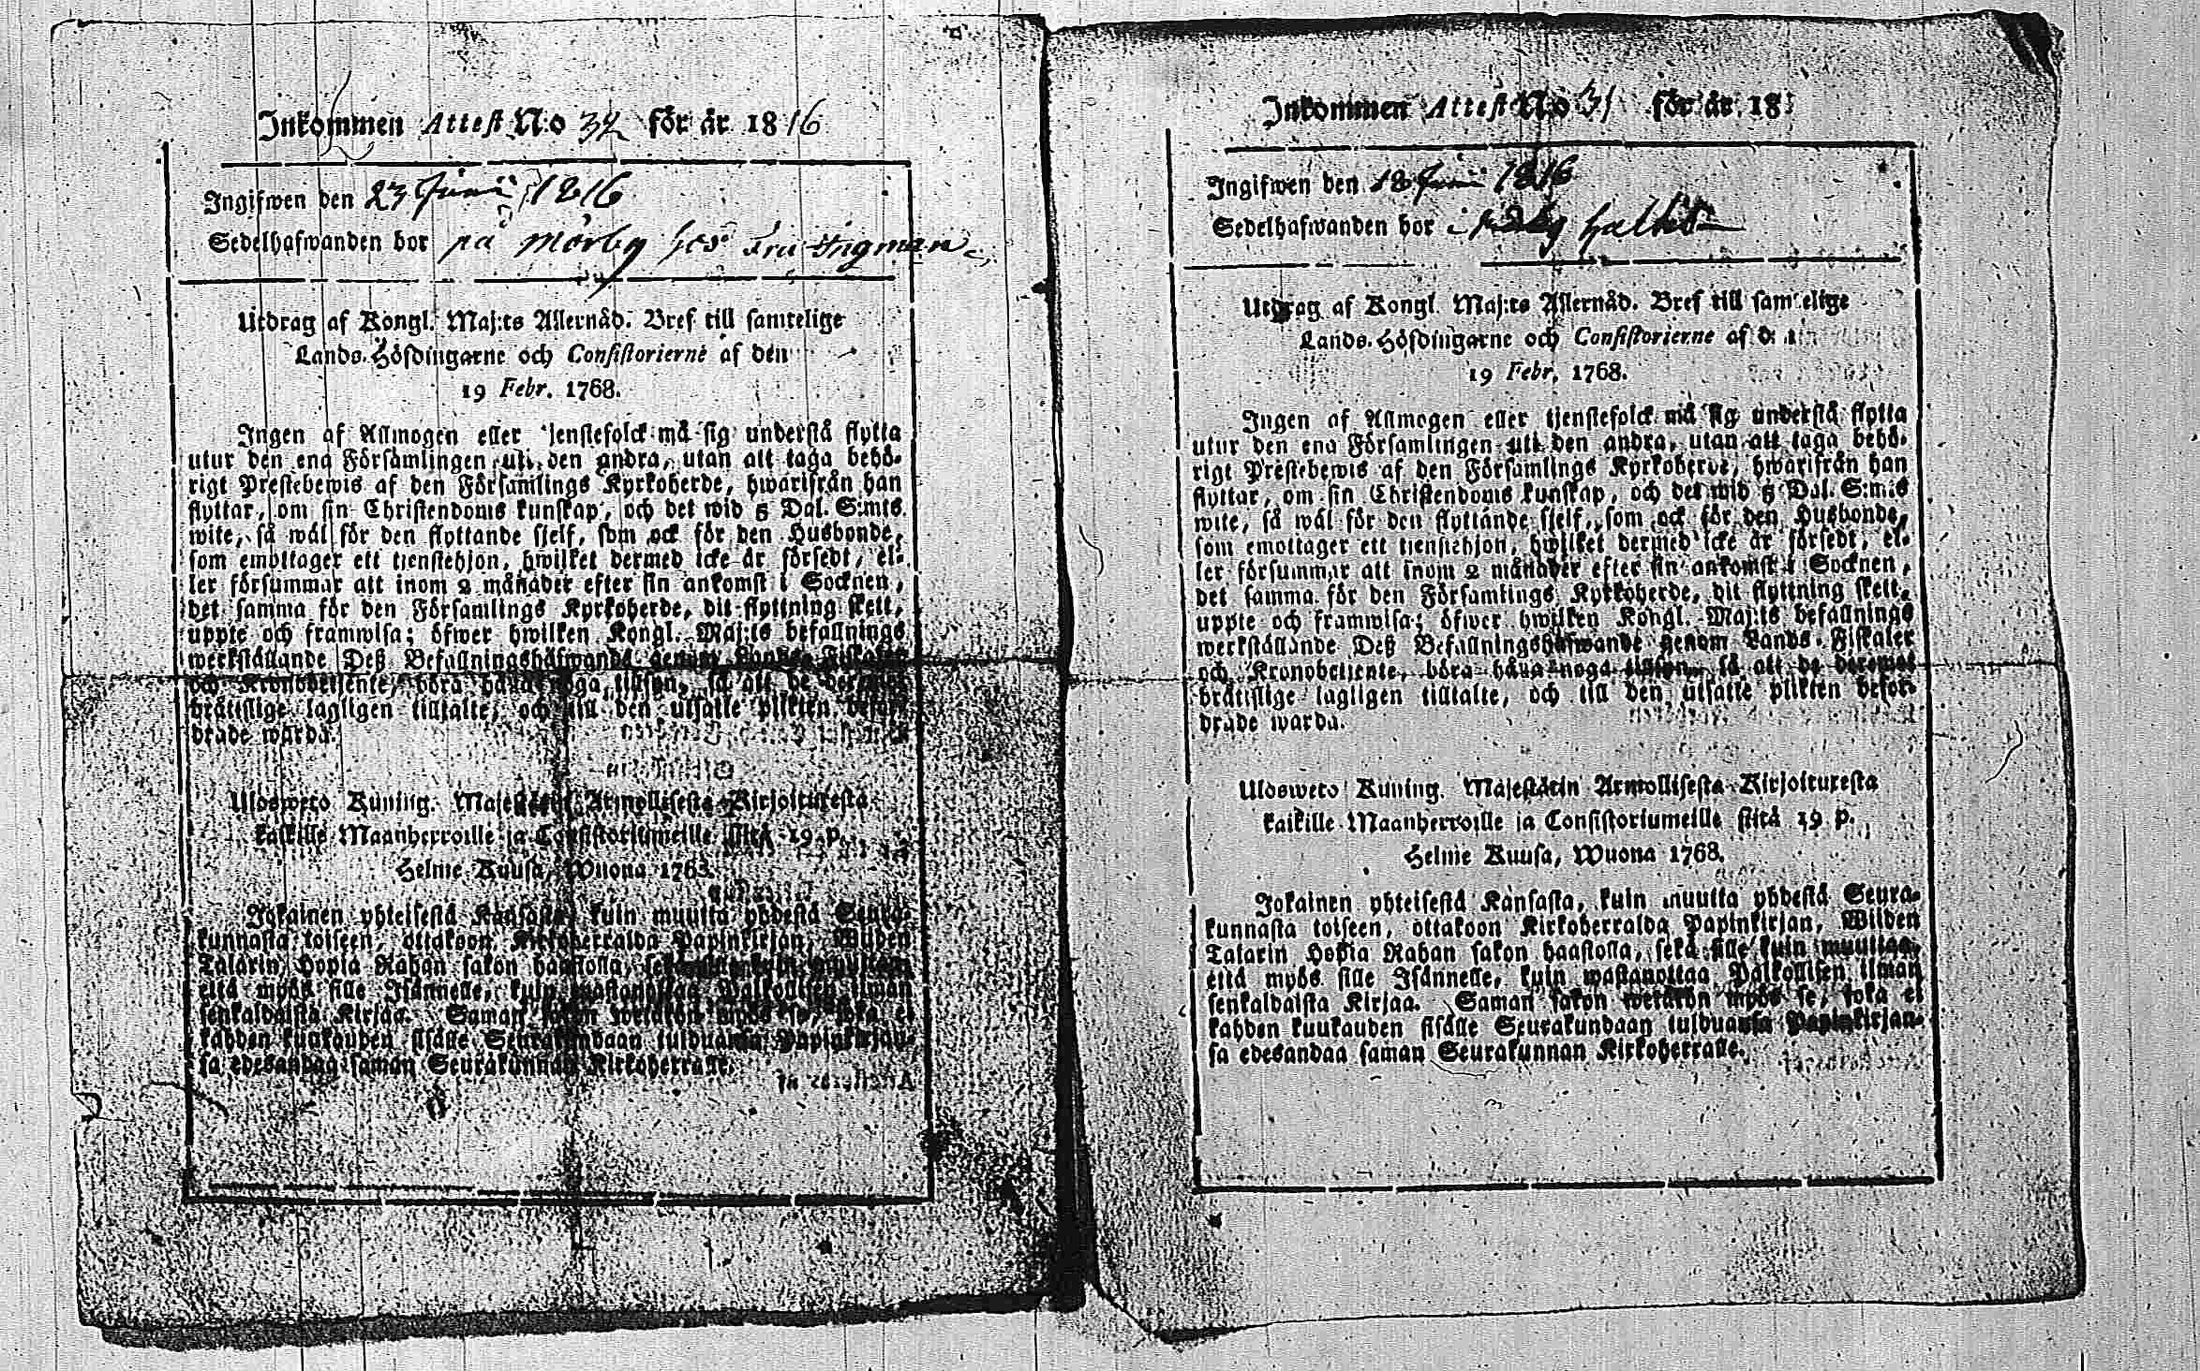 Inkommen Attest N:o 32 för år 1816
Ingifwen den 23 Junii 1816
Sedelhafwanden bor på Mörby hos Fru Ingman
Utdrag af Kongl. Maj:ts Allernåd. Bref till samtelige
Lands-Höfdingarne och Consistorierne af den
19 Febr. 1768.
Ingen af Allmogen eller tjenstefolck må sig understå flytta
utur den ena Församlingen uti den andra, utan att taga behö-
rigt Prestebewis af den Församlings Kyrkoherde, hwarifrån han
flyttar, om sin Christendoms kunskap, och det wid 5 Dal. S:mts
wite, så wäl för den flyttande sjelf, som ock för den Husbonde,
som emottager ett tjenstehjon, hwilket dermed icke är försedt, el-
ler försummar att inom 2 månader efter sin ankomst i Socknen,
det samma för den Församlings Kyrkoherde, dit flyttning skett,
uppte och framwisa; öfwer hwilken Kongl. Maj:ts befallnings
werkställande Deß Befallningshafwande genom Lands-Fiskaler
och Kronobetjente, böra hafwa noga tillsyn, så att de deremot
bråttslige lagligen tilltalte, och till den utsatte plikten befor-
drade warda.
Ulosweto Kuning. Majestätin Armollisesta Kirjoituxesta
kaikille Maanherroille ja Consistoriumeille siitä 19 p.
Helme Kuusa, Wuona 1768.
Jokainen yhteisestä Kansasta, kuin muutta yhdestä Seura-
kunnasta toiseen, ottakoon Kirkoherralda Papinkirjan, Wiiden
Talarin Hopia Rahan sakon haastolla, sekä sille kuin muuttaa,
että myös sille Isännelle, kuin wastanottaa Palkollisen ilman
senkaldaista Kirjaa. Saman sakon wetäkön myös se, joka ei
kahden kuukauden sisälle Seurakundaan tulduansa Papinkirjan-
sa edesandaa saman Seurakunnan Kirkoherralle.
Inkommen Attest N:o 31 för år 18
Ingifwen den 18 Junii 1816
Sedelhafwanden bor i
Utdrag af Kongl. Maj:ts Allernåd. Bref till samtelige
Lands-Höfdingarne och Consistorierne af den
19 Febr. 1768.
Ingen af Allmogen eller tjenstefolck må sig understå flytta
utur den ena Församlingen uti den andra, utan att taga behö-
rigt Prestebewis af den Församlings Kyrkoherde, hwarifrån han
flyttar, om sin Christendoms kunskap, och det wid 5 Dal. S:mts
wite, så wäl för den flyttande sjelf, som ock för den Husbonde,
som emottager ett tjenstehjon, hwilket dermed icke är försedt, el-
ler försummar att inom 2 månader efter sin ankomst i Socknen,
det samma för den Församlings Kyrkoherde, dit flyttning skett,
uppte och framwisa; öfwer hwilken Kongl. Maj:ts befallnings
werkställande Deß Befallningshafwande genom Lands-Fiskaler
och Kronobetjente, böra hafwa noga tillsyn, så att de deremot
bråttslige lagligen tilltalte, och till den utsatte plikten befor-
drade warda.
Ulosweto Kuning. Majestätin Armollisesta Kirjoituxesta
kaikille Maanherroille ja Consistoriumeille siitä 19 p.
Helme Kuusa, Wuona 1768.
Jokainen yhteisestä Kansasta, kuin muutta yhdestä Seura-
kunnasta toiseen, ottakoon Kirkoherralda Papinkirjan, Wiiden
Talarin Hopia Rahan sakon haastolla, sekä sille kuin muuttaa,
että myös sille Isännelle, kuin wastanottaa Palkollisen ilman
senkaldaista Kirjaa. Saman sakon wetäkön myös se, joka ei
kahden kuukauden sisälle Seurakundaan tulduansa Papinkirjan-
sa edesandaa saman Seurakunnan Kirkoherralle.